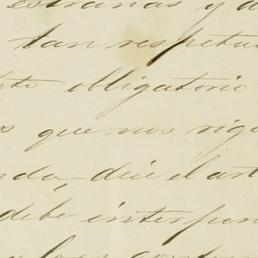 estrañas y d
tan respeta
nto obligatorio
s que nos rige
nda, dice el art
debe interpon